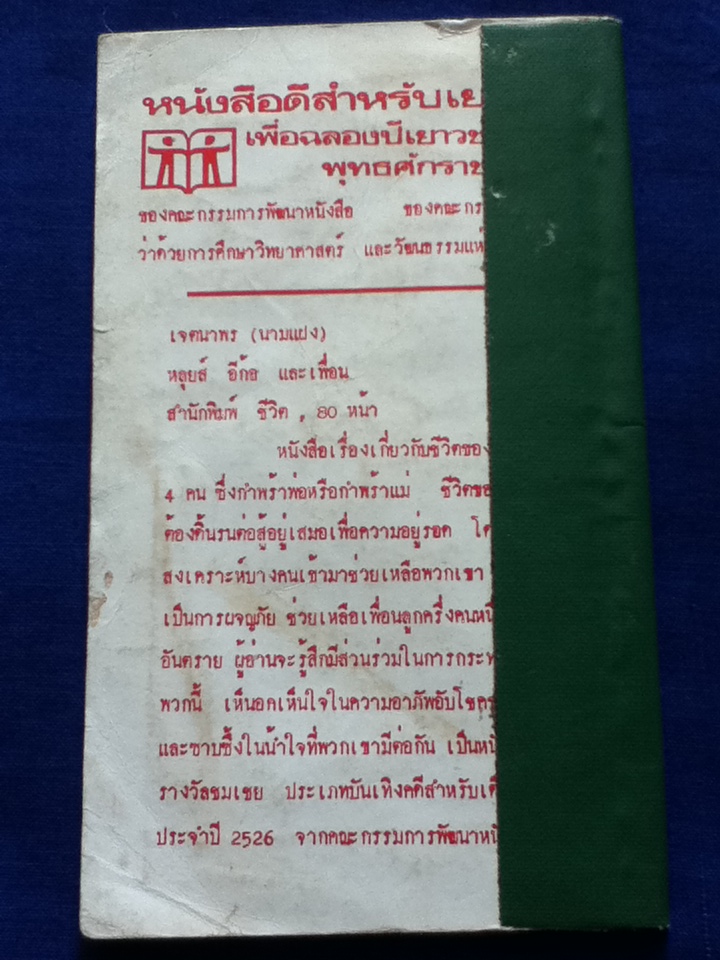 หนังสือดีสำหรับเย
เพื่อฉลองปีเยาวช
พุทธศักราช
ของคณะกรรมการพัฒนาหนังสือ ของคณะกร
ว่าด้วยการศึกษาวิทยาศาสตร์ และวัฒนธรรมแห่
เจตนาพร (นามแฝง)
หลุยส์ อีก้อ และเพื่อน
สำนักพิมพ์ ชีวิต , 80 หน้า
หนังสือเรื่องเกี่ยวกับชีวิตของ
4 คน ซึ่งกำพร้าพ่อหรือกำพร้าแม่ ชีวิตขอ
ต้องดิ้นรนต่อสู้อยู่เสมอเพื่อความอยู่รอด โด
สงเคราะห์บางคนเข้ามาช่วยเหลือพวกเขา
เป็นการผจญภัย ช่วยเหลือเพื่อนลูกครึ่งคนหนึ
อันตราย ผู้อ่านจะรู้สึกมีส่วนร่วมในการกระท
พวกนี้ เห็นอกเห็นใจในความอาภัพอับโชค
และซาบซึ้งในน้ำใจที่พวกเขามีต่อกัน เป็นหนั
รางวัลชมเชย ประเภทบันเทิงคดีสำหรับเด็
ประจำปี 2526 จากคณะกรรมการพัฒนาหนั